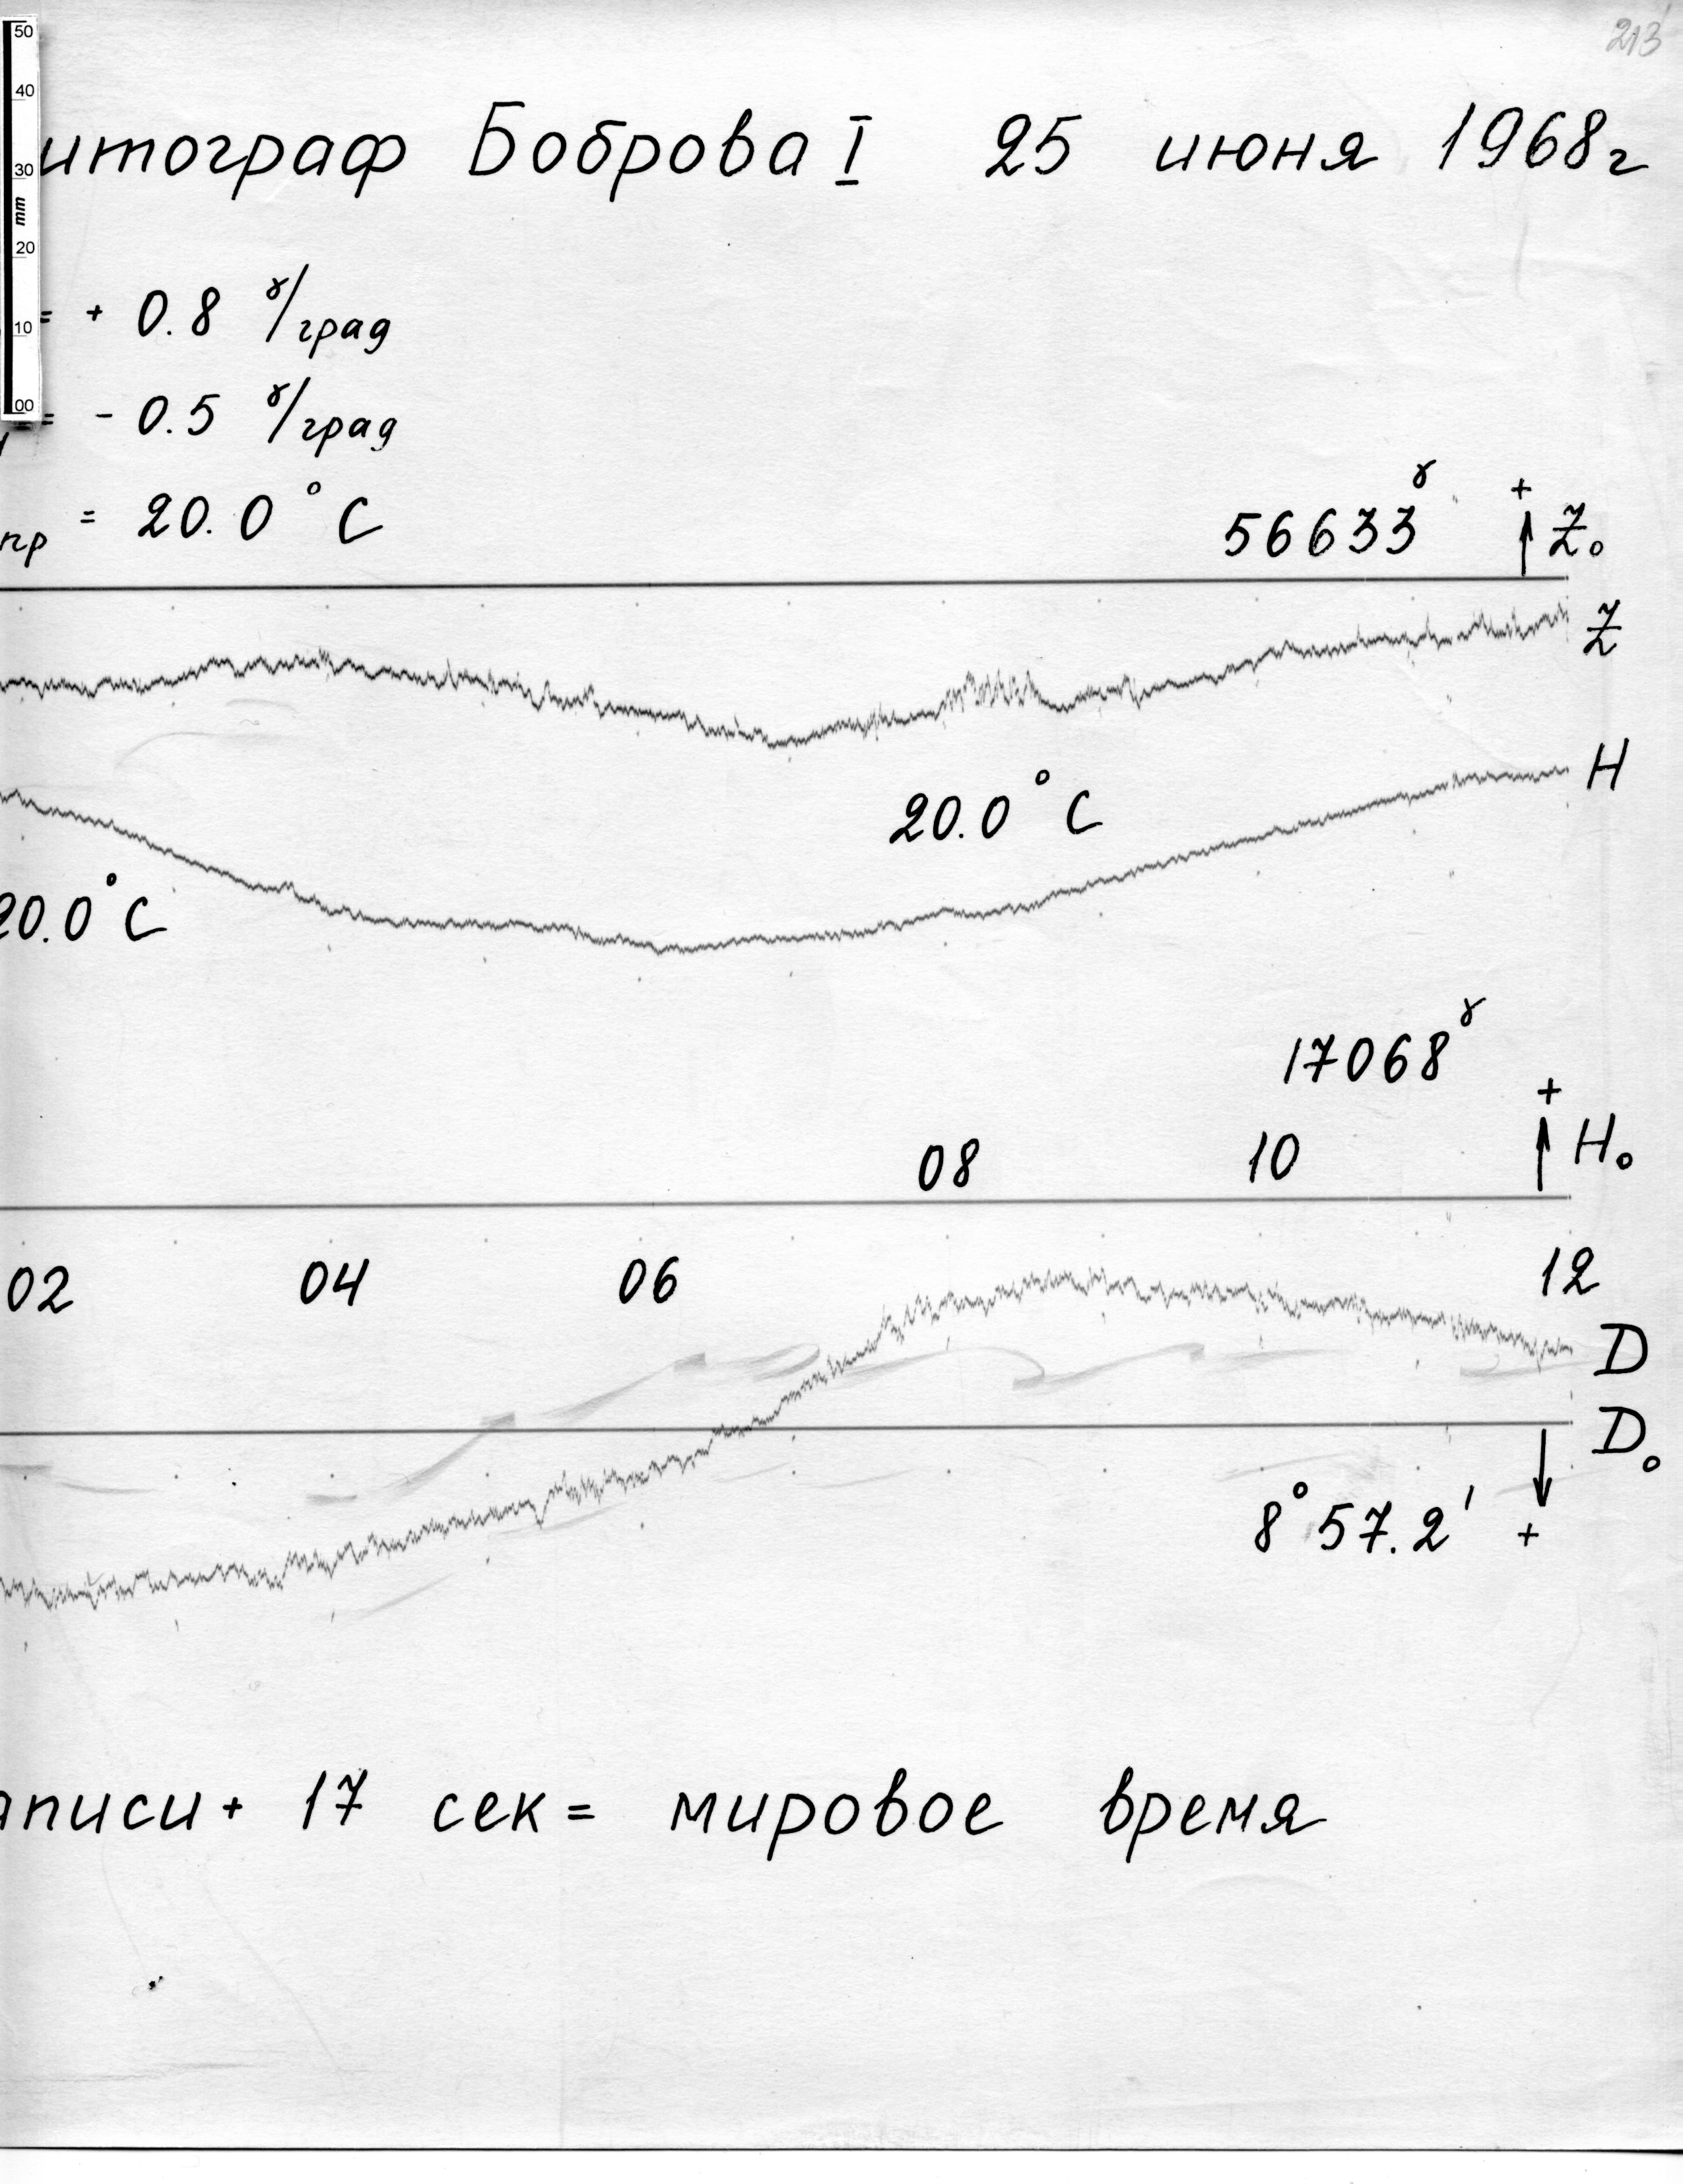 213
50
40
30
mm
20
10
00
итограф Боброва I 25 июня 1968г
= + 0.8 γ/град
= - 0.5 γ/град
пр = 20.0° C
56633γ + Z₀
Z
H
20.0° C
20.0° C
17068γ
+
08 10 H₀
02 04 06 12
D
D₀
8° 57.2' +
аписи + 17 сек = мировое время